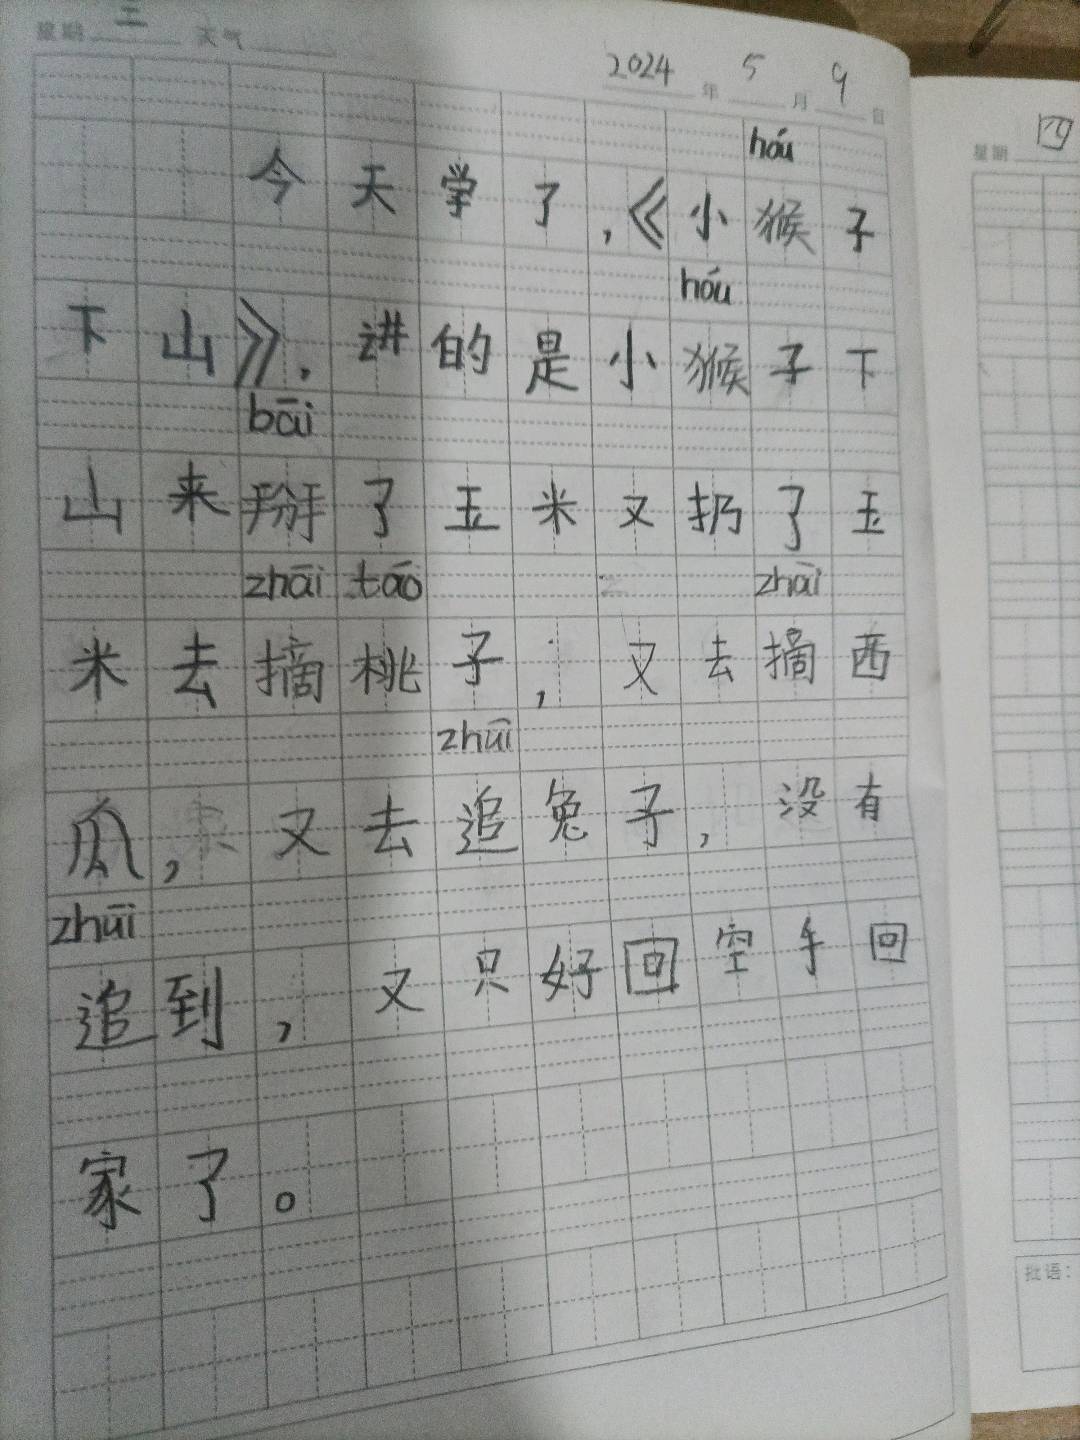 星期 三 天气
2024 年 5 月 9 日
hóu
今天学了,《小猴子
hóu
下山》,讲的是小猴子下
bāi
山来掰了玉米又扔了玉
zhāi táo zhāi
米去摘桃子,又去摘西
zhuī
瓜,又去追兔子,没有
zhuī
追到,又只好回空手回
家了。
星期 四
批语: